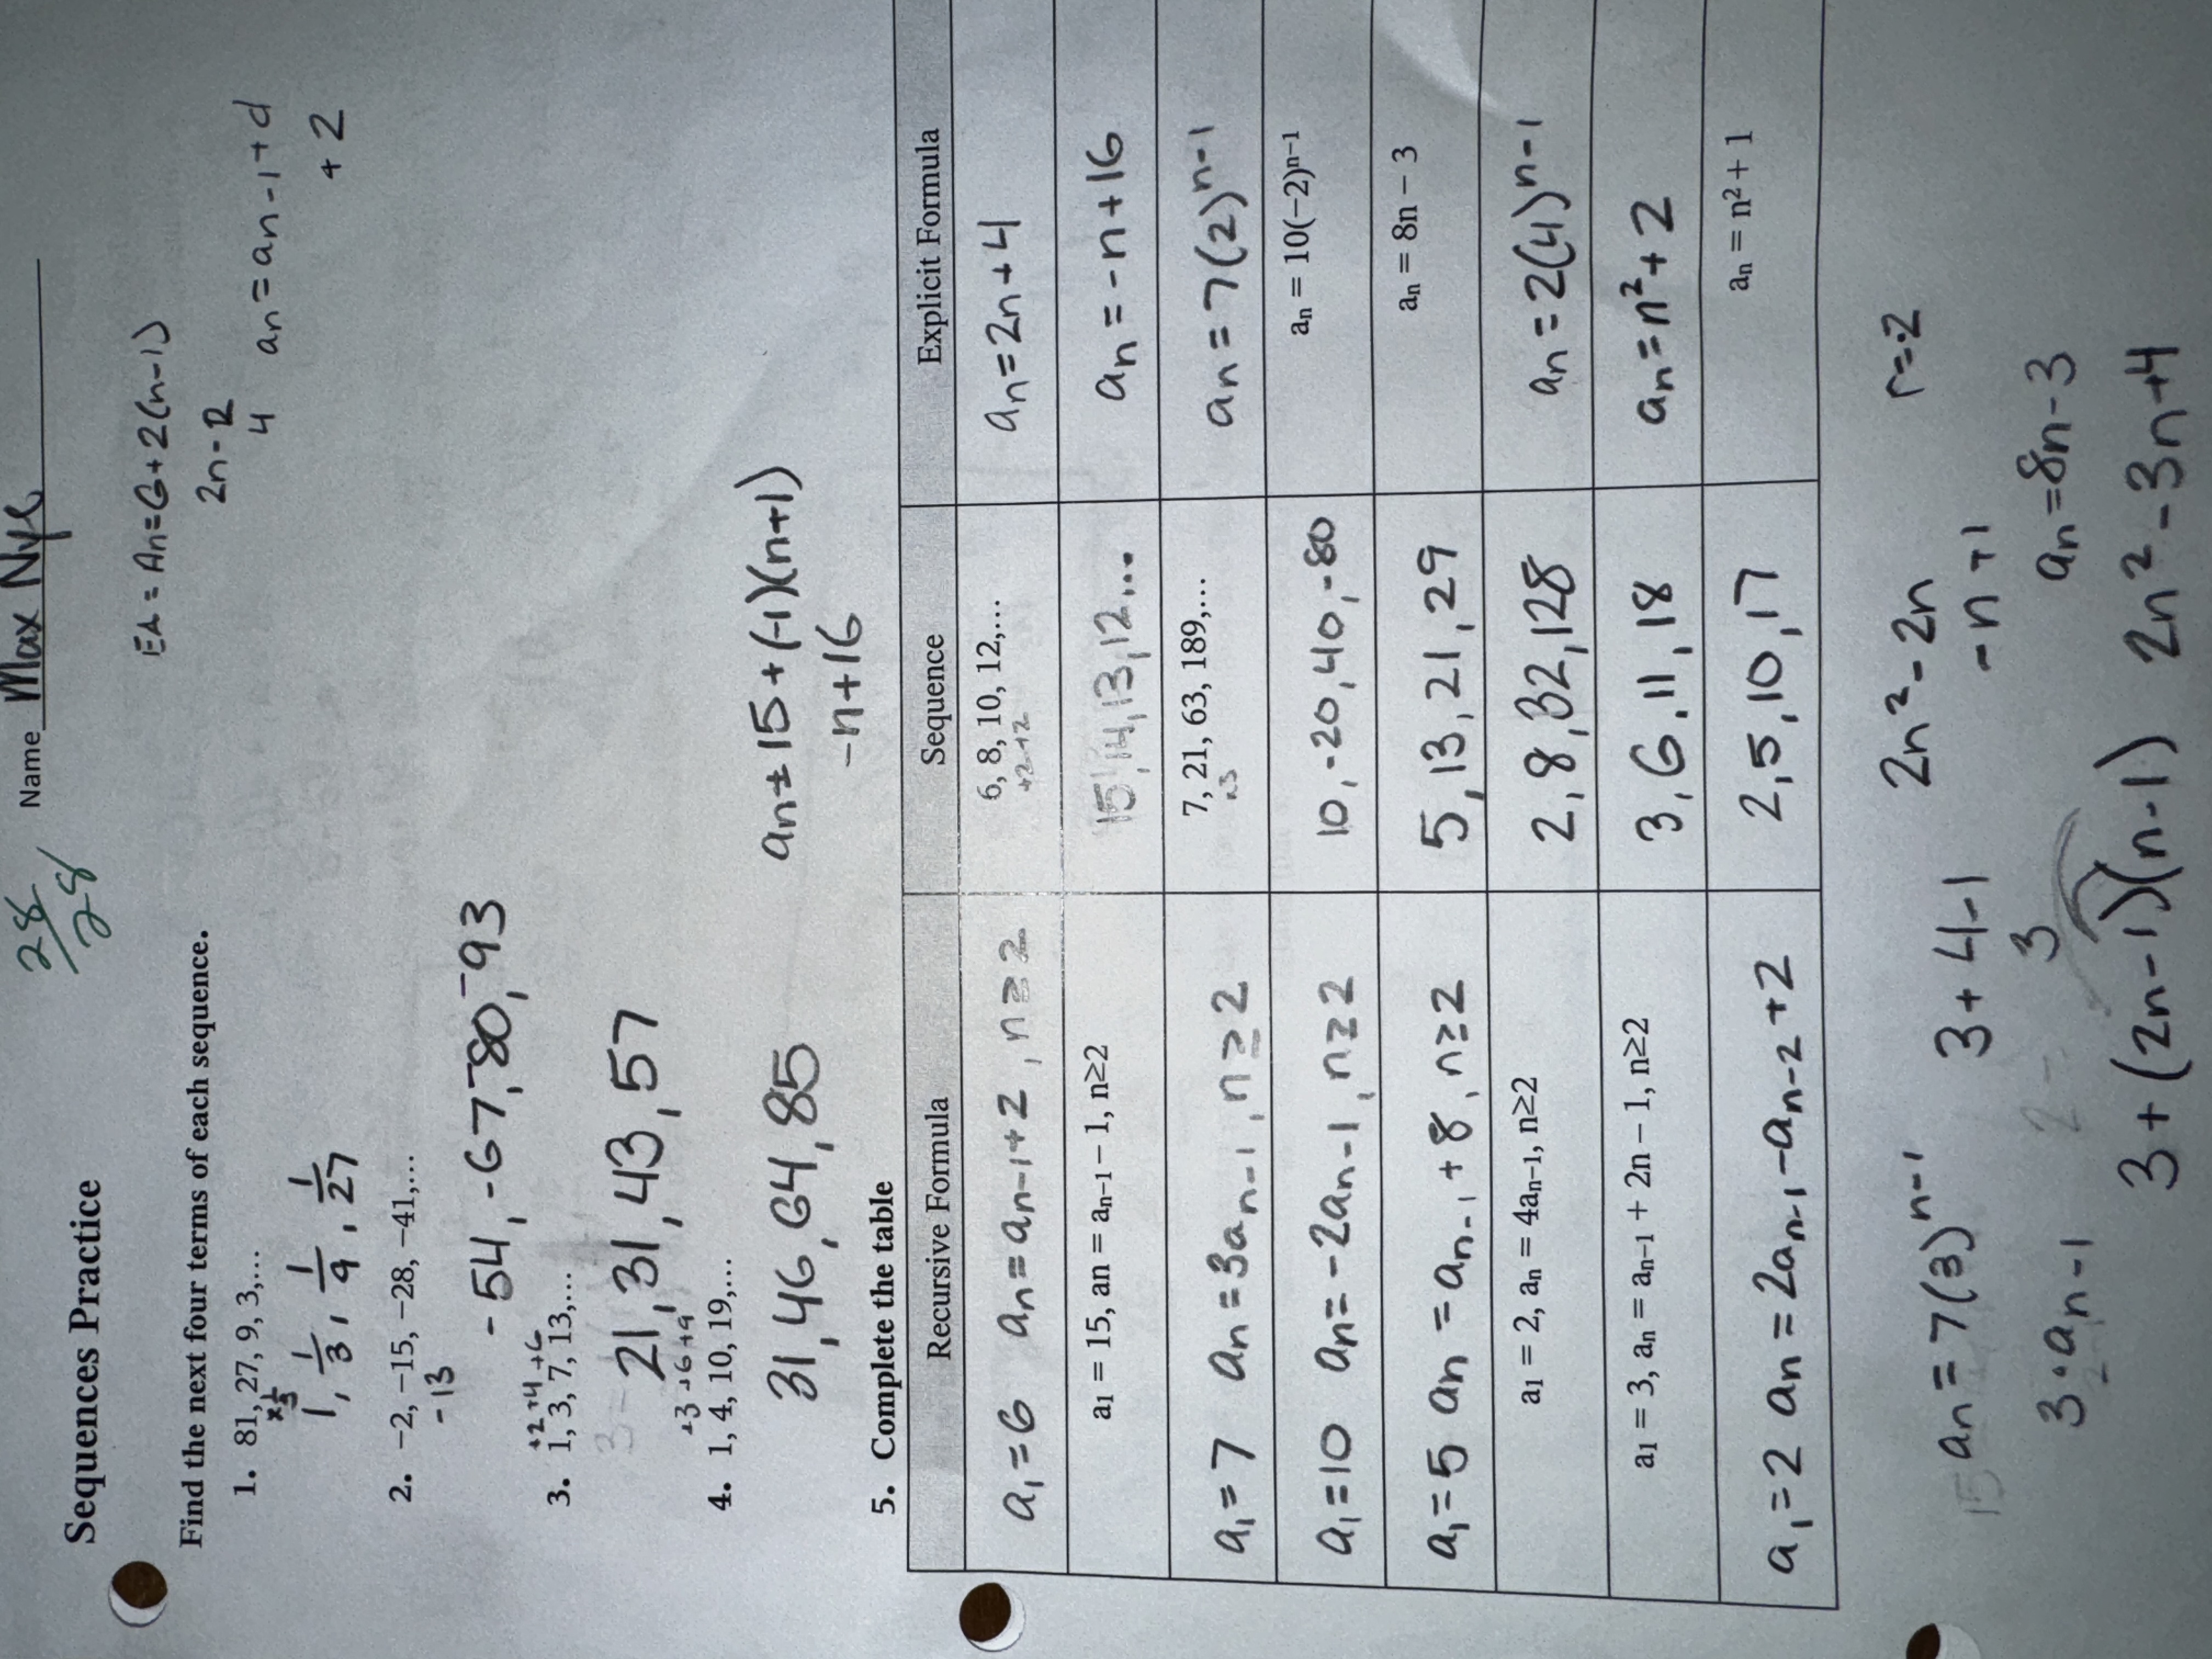 28/28
Name Max Nye
Sequences Practice
EA = An=6+2(n-1)
2n-2
4
an=an-1+d
+2
Find the next four terms of each sequence.
1. 81, 27, 9, 3,...
×1/3
1, 1/3, 1/9, 1/27
2. −2, −15, −28, −41,...
-13
-54, -67, -80, -93
+2 +4 +6
3. 1, 3, 7, 13,...
3=
21, 31, 43, 57
+3 +6 +9
4. 1, 4, 10, 19,...
31, 46, 64, 85
an± 15+(-1)(n+1)
-n+16
5. Complete the table
Recursive Formula Sequence Explicit Formula
a₁=6 an=an-1+2, n≥2 6, 8, 10, 12,... an=2n+4
+2 +2
a1 = 15, an = an−1 – 1, n≥2 15, 14, 13, 12... an=-n+16
a₁=7 an=3an-1, n≥2 7, 21, 63, 189,... an=7(2)ⁿ⁻¹
×3
a₁=10 an=-2an-1, n≥2 10, -20, 40, -80 an = 10(−2)ⁿ⁻¹
a₁=5 an=an-1+8, n≥2 5, 13, 21, 29 an = 8n – 3
a1 = 2, an = 4an−1, n≥2 2, 8, 32, 128 an=2(4)ⁿ⁻¹
a1 = 3, an = an−1 + 2n – 1, n≥2 3, 6, 11, 18 an=n²+2
a₁=2 an=2an-1-an-2+2 2, 5, 10, 17 an = n² + 1
an=7(3)ⁿ⁻¹
15
3+4-1
3
2n²-2n
-n+1
r=-2
3·an-1
2=
an=8n-3
3+(2n-1)(n-1)
2n²-3n+4